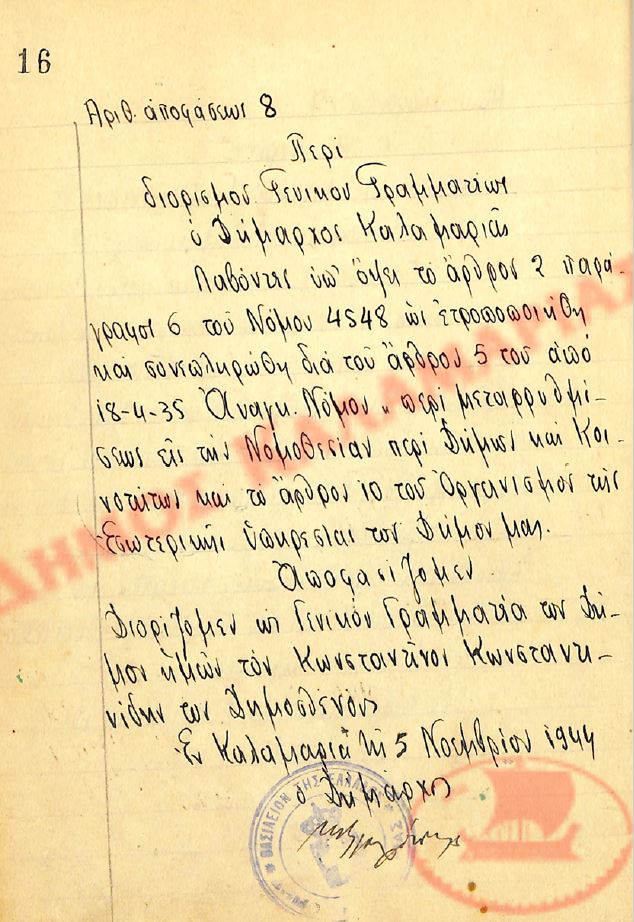 16
Αριθ. ἀποφάσεως 8
Περί
διορισμοῦ Γενικοῦ Γραμματέως
ὁ Δήμαρχος Καλαμαριᾶς
Λαβόντες ὑπ' ὄψει τό ἄρθρος 2 παρά-
γραφος 6 τοῦ Νόμου 4548 ὡς ἐτροποποιήθη
καί συνεπληρώθη διά τοῦ ἄρθρου 5 τοῦ ἀπό
18-4-35 Ἀναγκ. Νόμου „ περί μεταρρυθμί-
σεως εἰς τήν Νομοθεσίαν περί Δήμων καί Κοι-
νοτήτων καί τό ἄρθρον 10 τοῦ Ὀργανισμοῦ τῆς
Ἐσωτερικῆς ὑπηρεσίας τοῦ Δήμου μας.
Ἀποφασίζομεν
Διορίζομεν ὡς Γενικόν Γραμματέα τοῦ Δή-
μου ἡμῶν τόν Κωνσταντῖνον Κωνσταντι-
νίδην τοῦ Δημοσθένους
Ἐν Καλαμαριᾷ τῇ 5 Νοεμβρίου 1944
ὁ Δήμαρχος
ΒΑΣΙΛΕΙΟΝ ΤΗΣ ΕΛΛΑΔΟΣ
ΔΗΜΟΣ ΚΑΛΑΜΑΡΙΑΣ